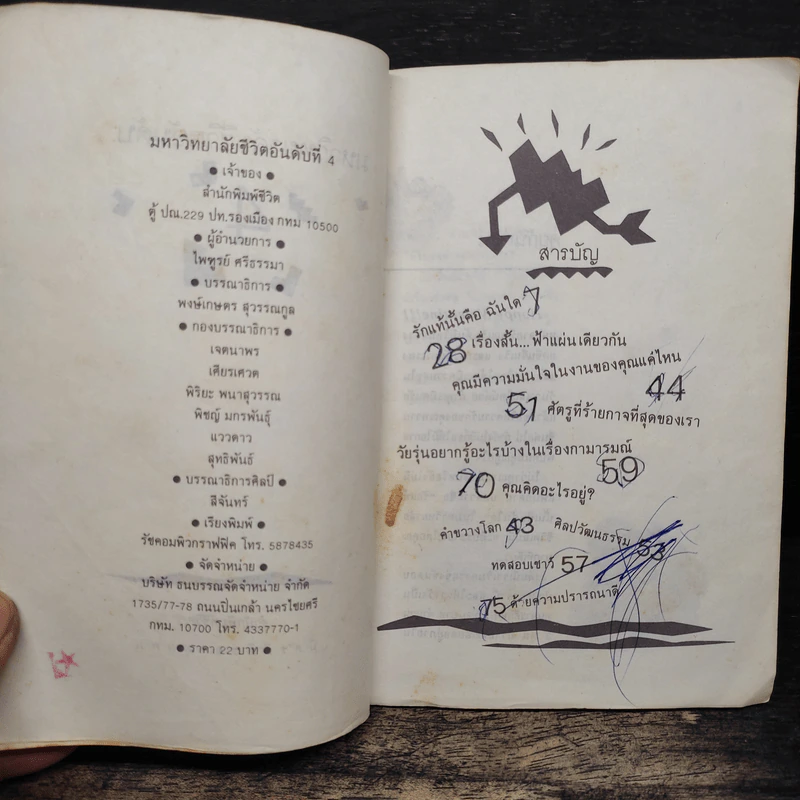 มหาวิทยาลัยชีวิตอันดับที่ 4
● เจ้าของ ●
สำนักพิมพ์ชีวิต
ตู้ ปณ.229 ปท.รองเมือง กทม 10500
● ผู้อำนวยการ ●
ไพฑูรย์ ศรีธรรมา
● บรรณาธิการ ●
พงษ์เกษตร สุวรรณกูล
● กองบรรณาธิการ ●
เจตนาพร
เศียรเศวต
พิริยะ พนาสุวรรณ
พิชญ์ มกรพันธุ์
แววดาว
สุทธิพันธ์
● บรรณาธิการศิลป์ ●
สีจันทร์
● เรียงพิมพ์ ●
รัชคอมพิวกราฟฟิค โทร. 5878435
● จัดจำหน่าย ●
บริษัท ธนบรรณจัดจำหน่าย จำกัด
1735/77-78 ถนนปิ่นเกล้า นครไชยศรี
กทม. 10700 โทร. 4337770-1
● ราคา 22 บาท ●
สารบัญ
รักแท้นั้นคือ ฉันใด 7
28 เรื่องสั้น...ฟ้าแผ่นเดียวกัน
คุณมีความมั่นใจในงานของคุณแค่ไหน 44
51 ศัตรูที่ร้ายกาจที่สุดของเรา
วัยรุ่นอยากรู้อะไรบ้างในเรื่องกามารมณ์ 59
70 คุณคิดอะไรอยู่?
คำขวางโลก 43 ศิลปวัฒนธรรม 53
ทดสอบเชาว์ 57
75 ด้วยความปรารถนาดี